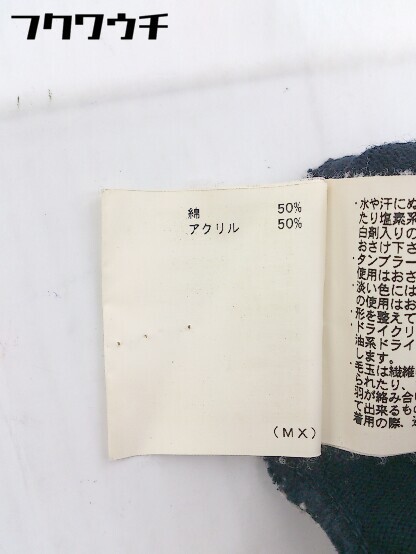 フクワウチ
綿 50%
アクリル 50%
(MX)
・水や汗にぬ
たり塩素系
白剤入りの
おさけ下さ
・タンブラー
使用はおさ
・淡い色には
の使用はお
・形を整えて
・ドライクリ
油系ドライ
します。
・毛玉は繊維
られたり、
羽が絡み合い
て出来るもの
着用の際、